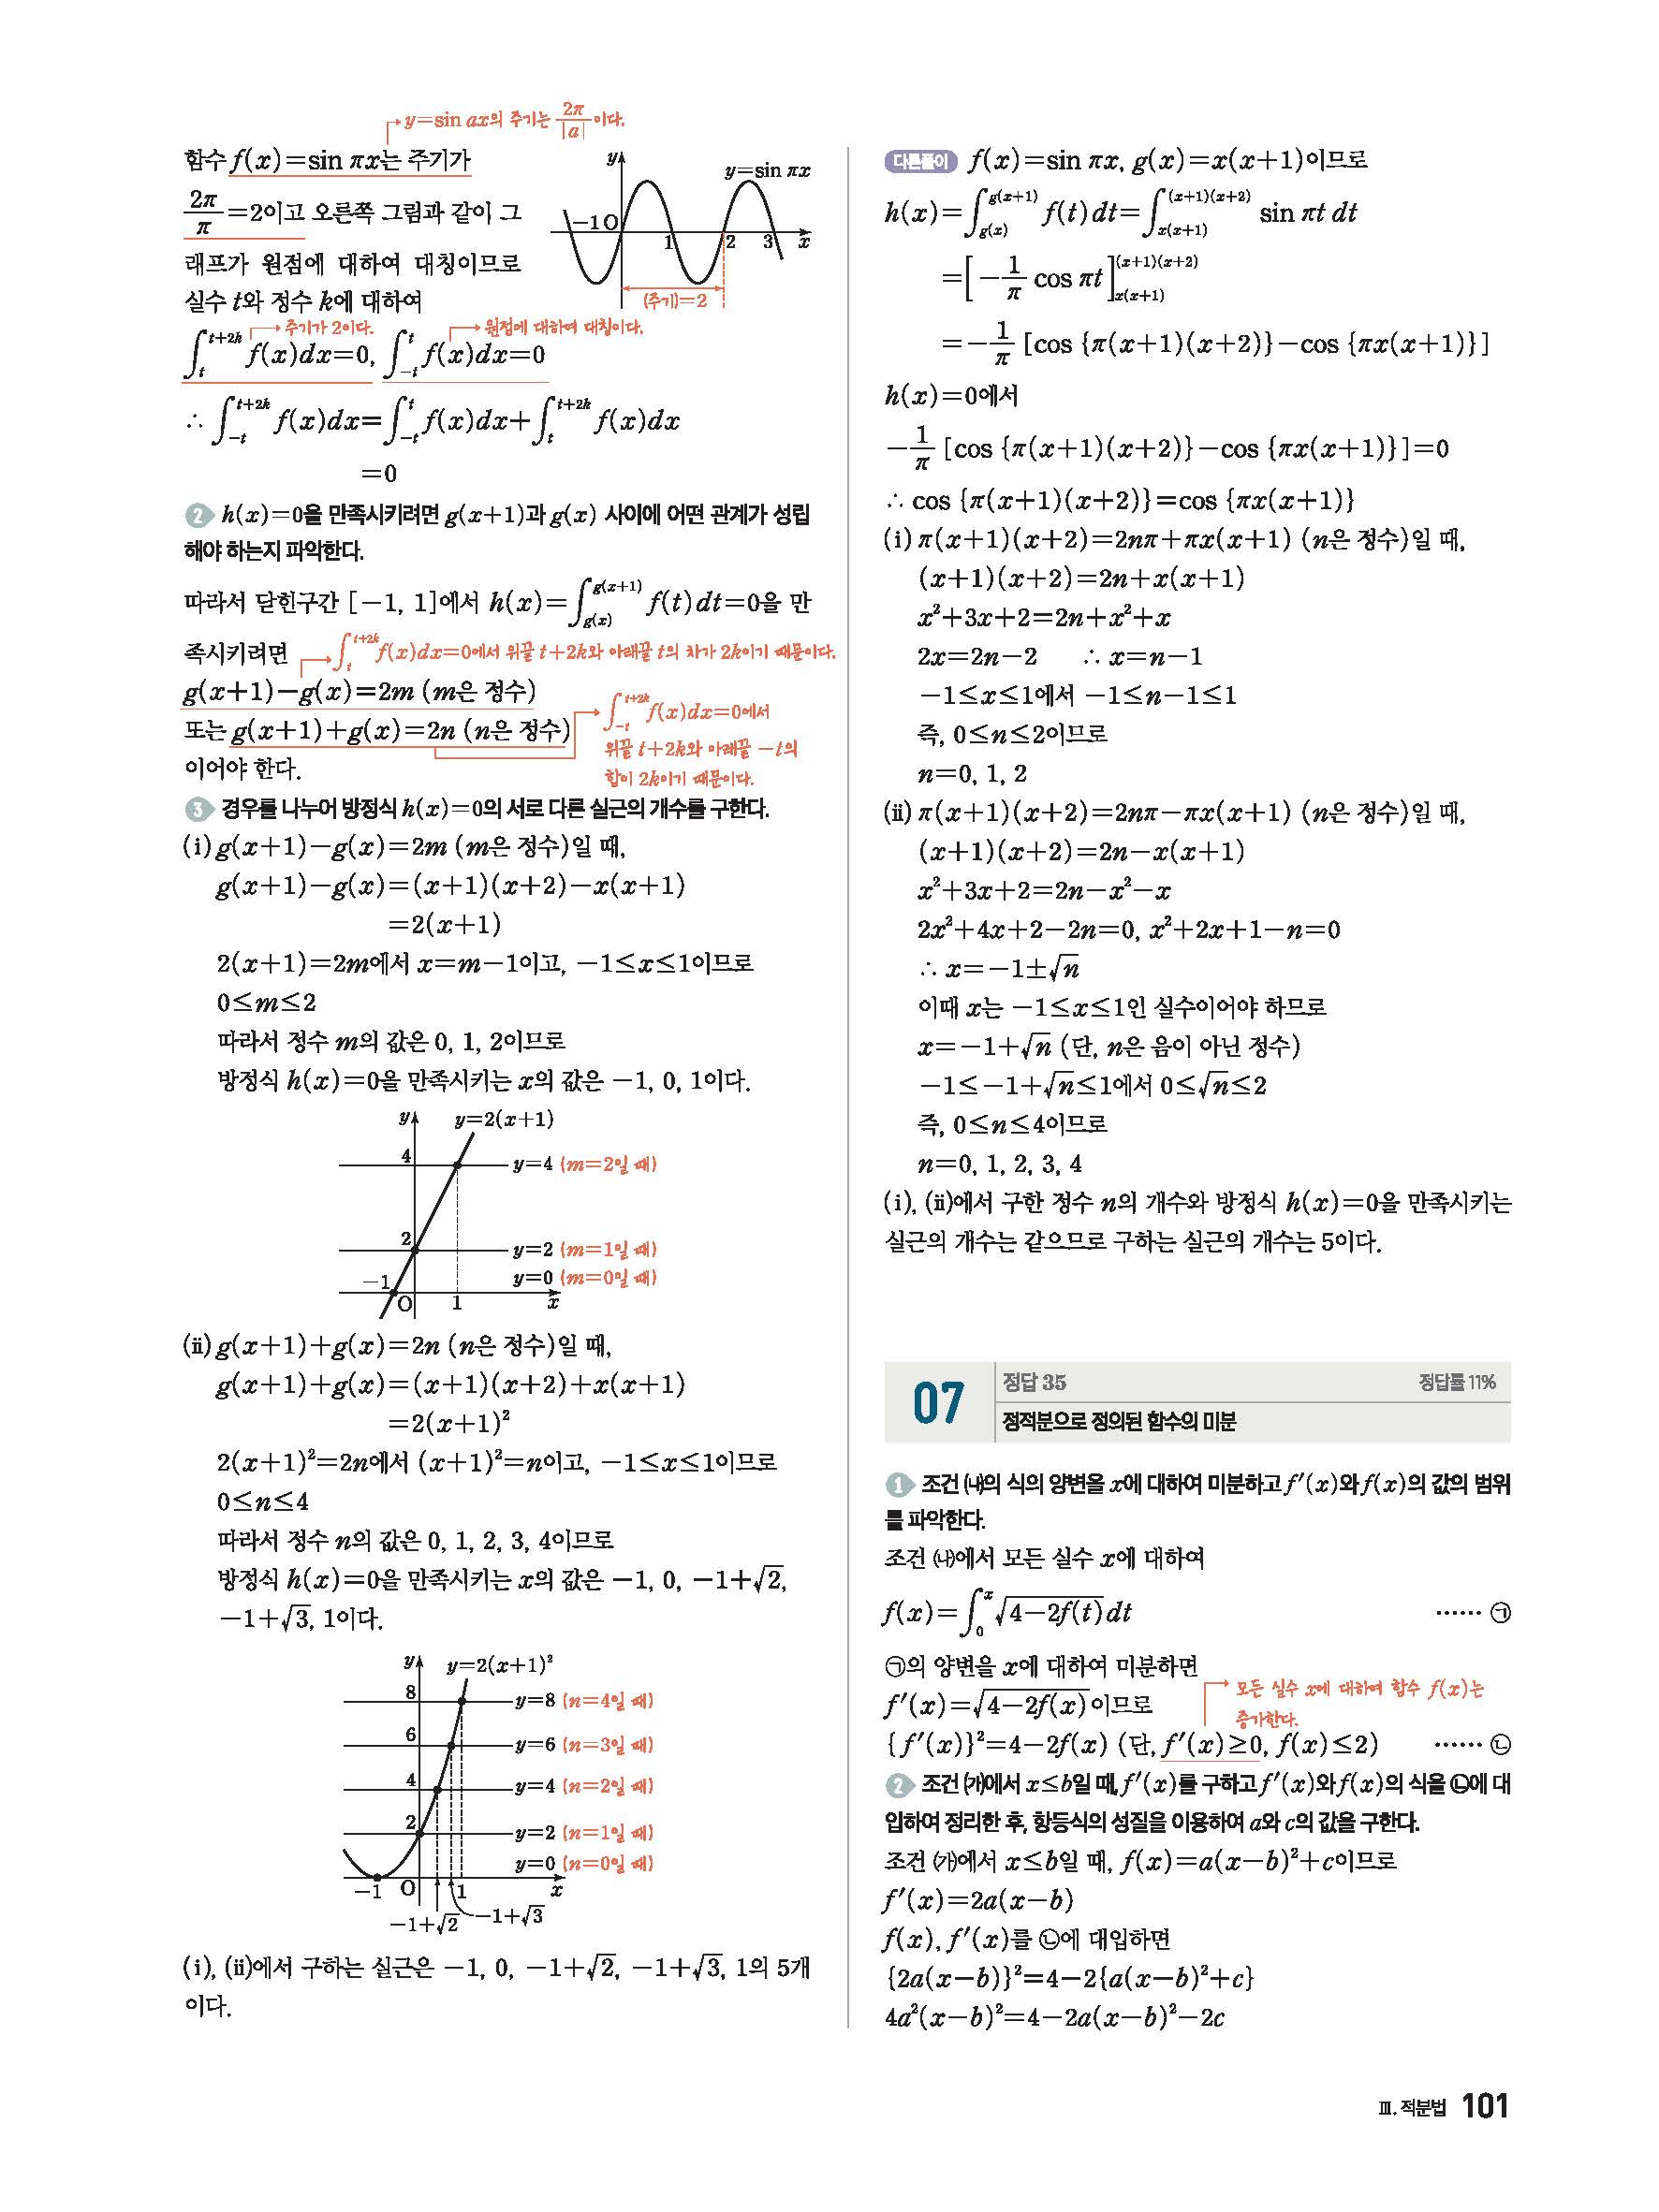 y=sin ax의 주기는 2π/|a|이다.
함수 f(x)=sin πx는 주기가
2π/π=2이고 오른쪽 그림과 같이 그
래프가 원점에 대하여 대칭이므로
실수 t와 정수 k에 대하여
y
y=sin πx
-1 O 1 2 3 x
(주기)=2
주기가 2이다. 원점에 대하여 대칭이다.
∫_t^{t+2k} f(x)dx=0, ∫_{-t}^{t} f(x)dx=0
∴ ∫_{-t}^{t+2k} f(x)dx=∫_{-t}^{t} f(x)dx+∫_t^{t+2k} f(x)dx
=0
2 h(x)=0을 만족시키려면 g(x+1)과 g(x) 사이에 어떤 관계가 성립
해야 하는지 파악한다.
따라서 닫힌구간 [-1, 1]에서 h(x)=∫_{g(x)}^{g(x+1)} f(t)dt=0을 만
족시키려면
∫_t^{t+2k} f(x)dx=0에서 위끝 t+2k와 아래끝 t의 차가 2k이기 때문이다.
g(x+1)-g(x)=2m (m은 정수)
또는 g(x+1)+g(x)=2n (n은 정수)
이어야 한다.
∫_{-t}^{t+2k} f(x)dx=0에서
위끝 t+2k와 아래끝 -t의
합이 2k이기 때문이다.
3 경우를 나누어 방정식 h(x)=0의 서로 다른 실근의 개수를 구한다.
(ⅰ) g(x+1)-g(x)=2m (m은 정수)일 때,
g(x+1)-g(x)=(x+1)(x+2)-x(x+1)
=2(x+1)
2(x+1)=2m에서 x=m-1이고, -1≤x≤1이므로
0≤m≤2
따라서 정수 m의 값은 0, 1, 2이므로
방정식 h(x)=0을 만족시키는 x의 값은 -1, 0, 1이다.
y y=2(x+1)
4 y=4 (m=2일 때)
2 y=2 (m=1일 때)
-1 y=0 (m=0일 때)
O 1 x
(ⅱ) g(x+1)+g(x)=2n (n은 정수)일 때,
g(x+1)+g(x)=(x+1)(x+2)+x(x+1)
=2(x+1)²
2(x+1)²=2n에서 (x+1)²=n이고, -1≤x≤1이므로
0≤n≤4
따라서 정수 n의 값은 0, 1, 2, 3, 4이므로
방정식 h(x)=0을 만족시키는 x의 값은 -1, 0, -1+√2,
-1+√3, 1이다.
y y=2(x+1)²
8 y=8 (n=4일 때)
6 y=6 (n=3일 때)
4 y=4 (n=2일 때)
2 y=2 (n=1일 때)
y=0 (n=0일 때)
-1 O 1 x
-1+√2 -1+√3
(ⅰ), (ⅱ)에서 구하는 실근은 -1, 0, -1+√2, -1+√3, 1의 5개
이다.
다른풀이 f(x)=sin πx, g(x)=x(x+1)이므로
h(x)=∫_{g(x)}^{g(x+1)} f(t)dt=∫_{x(x+1)}^{(x+1)(x+2)} sin πt dt
=[-1/π cos πt]_{x(x+1)}^{(x+1)(x+2)}
=-1/π [cos {π(x+1)(x+2)}-cos {πx(x+1)}]
h(x)=0에서
-1/π [cos {π(x+1)(x+2)}-cos {πx(x+1)}]=0
∴ cos {π(x+1)(x+2)}=cos {πx(x+1)}
(ⅰ) π(x+1)(x+2)=2nπ+πx(x+1) (n은 정수)일 때,
(x+1)(x+2)=2n+x(x+1)
x²+3x+2=2n+x²+x
2x=2n-2 ∴ x=n-1
-1≤x≤1에서 -1≤n-1≤1
즉, 0≤n≤2이므로
n=0, 1, 2
(ⅱ) π(x+1)(x+2)=2nπ-πx(x+1) (n은 정수)일 때,
(x+1)(x+2)=2n-x(x+1)
x²+3x+2=2n-x²-x
2x²+4x+2-2n=0, x²+2x+1-n=0
∴ x=-1±√n
이때 x는 -1≤x≤1인 실수이어야 하므로
x=-1+√n (단, n은 음이 아닌 정수)
-1≤-1+√n≤1에서 0≤√n≤2
즉, 0≤n≤4이므로
n=0, 1, 2, 3, 4
(ⅰ), (ⅱ)에서 구한 정수 n의 개수와 방정식 h(x)=0을 만족시키는
실근의 개수는 같으므로 구하는 실근의 개수는 5이다.
07 정답 35 정답률 11%
정적분으로 정의된 함수의 미분
1 조건 ㈏의 식의 양변을 x에 대하여 미분하고 f′(x)와 f(x)의 값의 범위
를 파악한다.
조건 ㈏에서 모든 실수 x에 대하여
f(x)=∫_0^x √(4-2f(t)) dt ⋯⋯ ㉠
㉠의 양변을 x에 대하여 미분하면
f′(x)=√(4-2f(x))이므로
모든 실수 x에 대하여 함수 f(x)는
증가한다.
{f′(x)}²=4-2f(x) (단, f′(x)≥0, f(x)≤2) ⋯⋯ ㉡
2 조건 ㈎에서 x≤b일 때, f′(x)를 구하고 f′(x)와 f(x)의 식을 ㉡에 대
입하여 정리한 후, 항등식의 성질을 이용하여 a와 c의 값을 구한다.
조건 ㈎에서 x≤b일 때, f(x)=a(x-b)²+c이므로
f′(x)=2a(x-b)
f(x), f′(x)를 ㉡에 대입하면
{2a(x-b)}²=4-2{a(x-b)²+c}
4a²(x-b)²=4-2a(x-b)²-2c
Ⅲ. 적분법 101